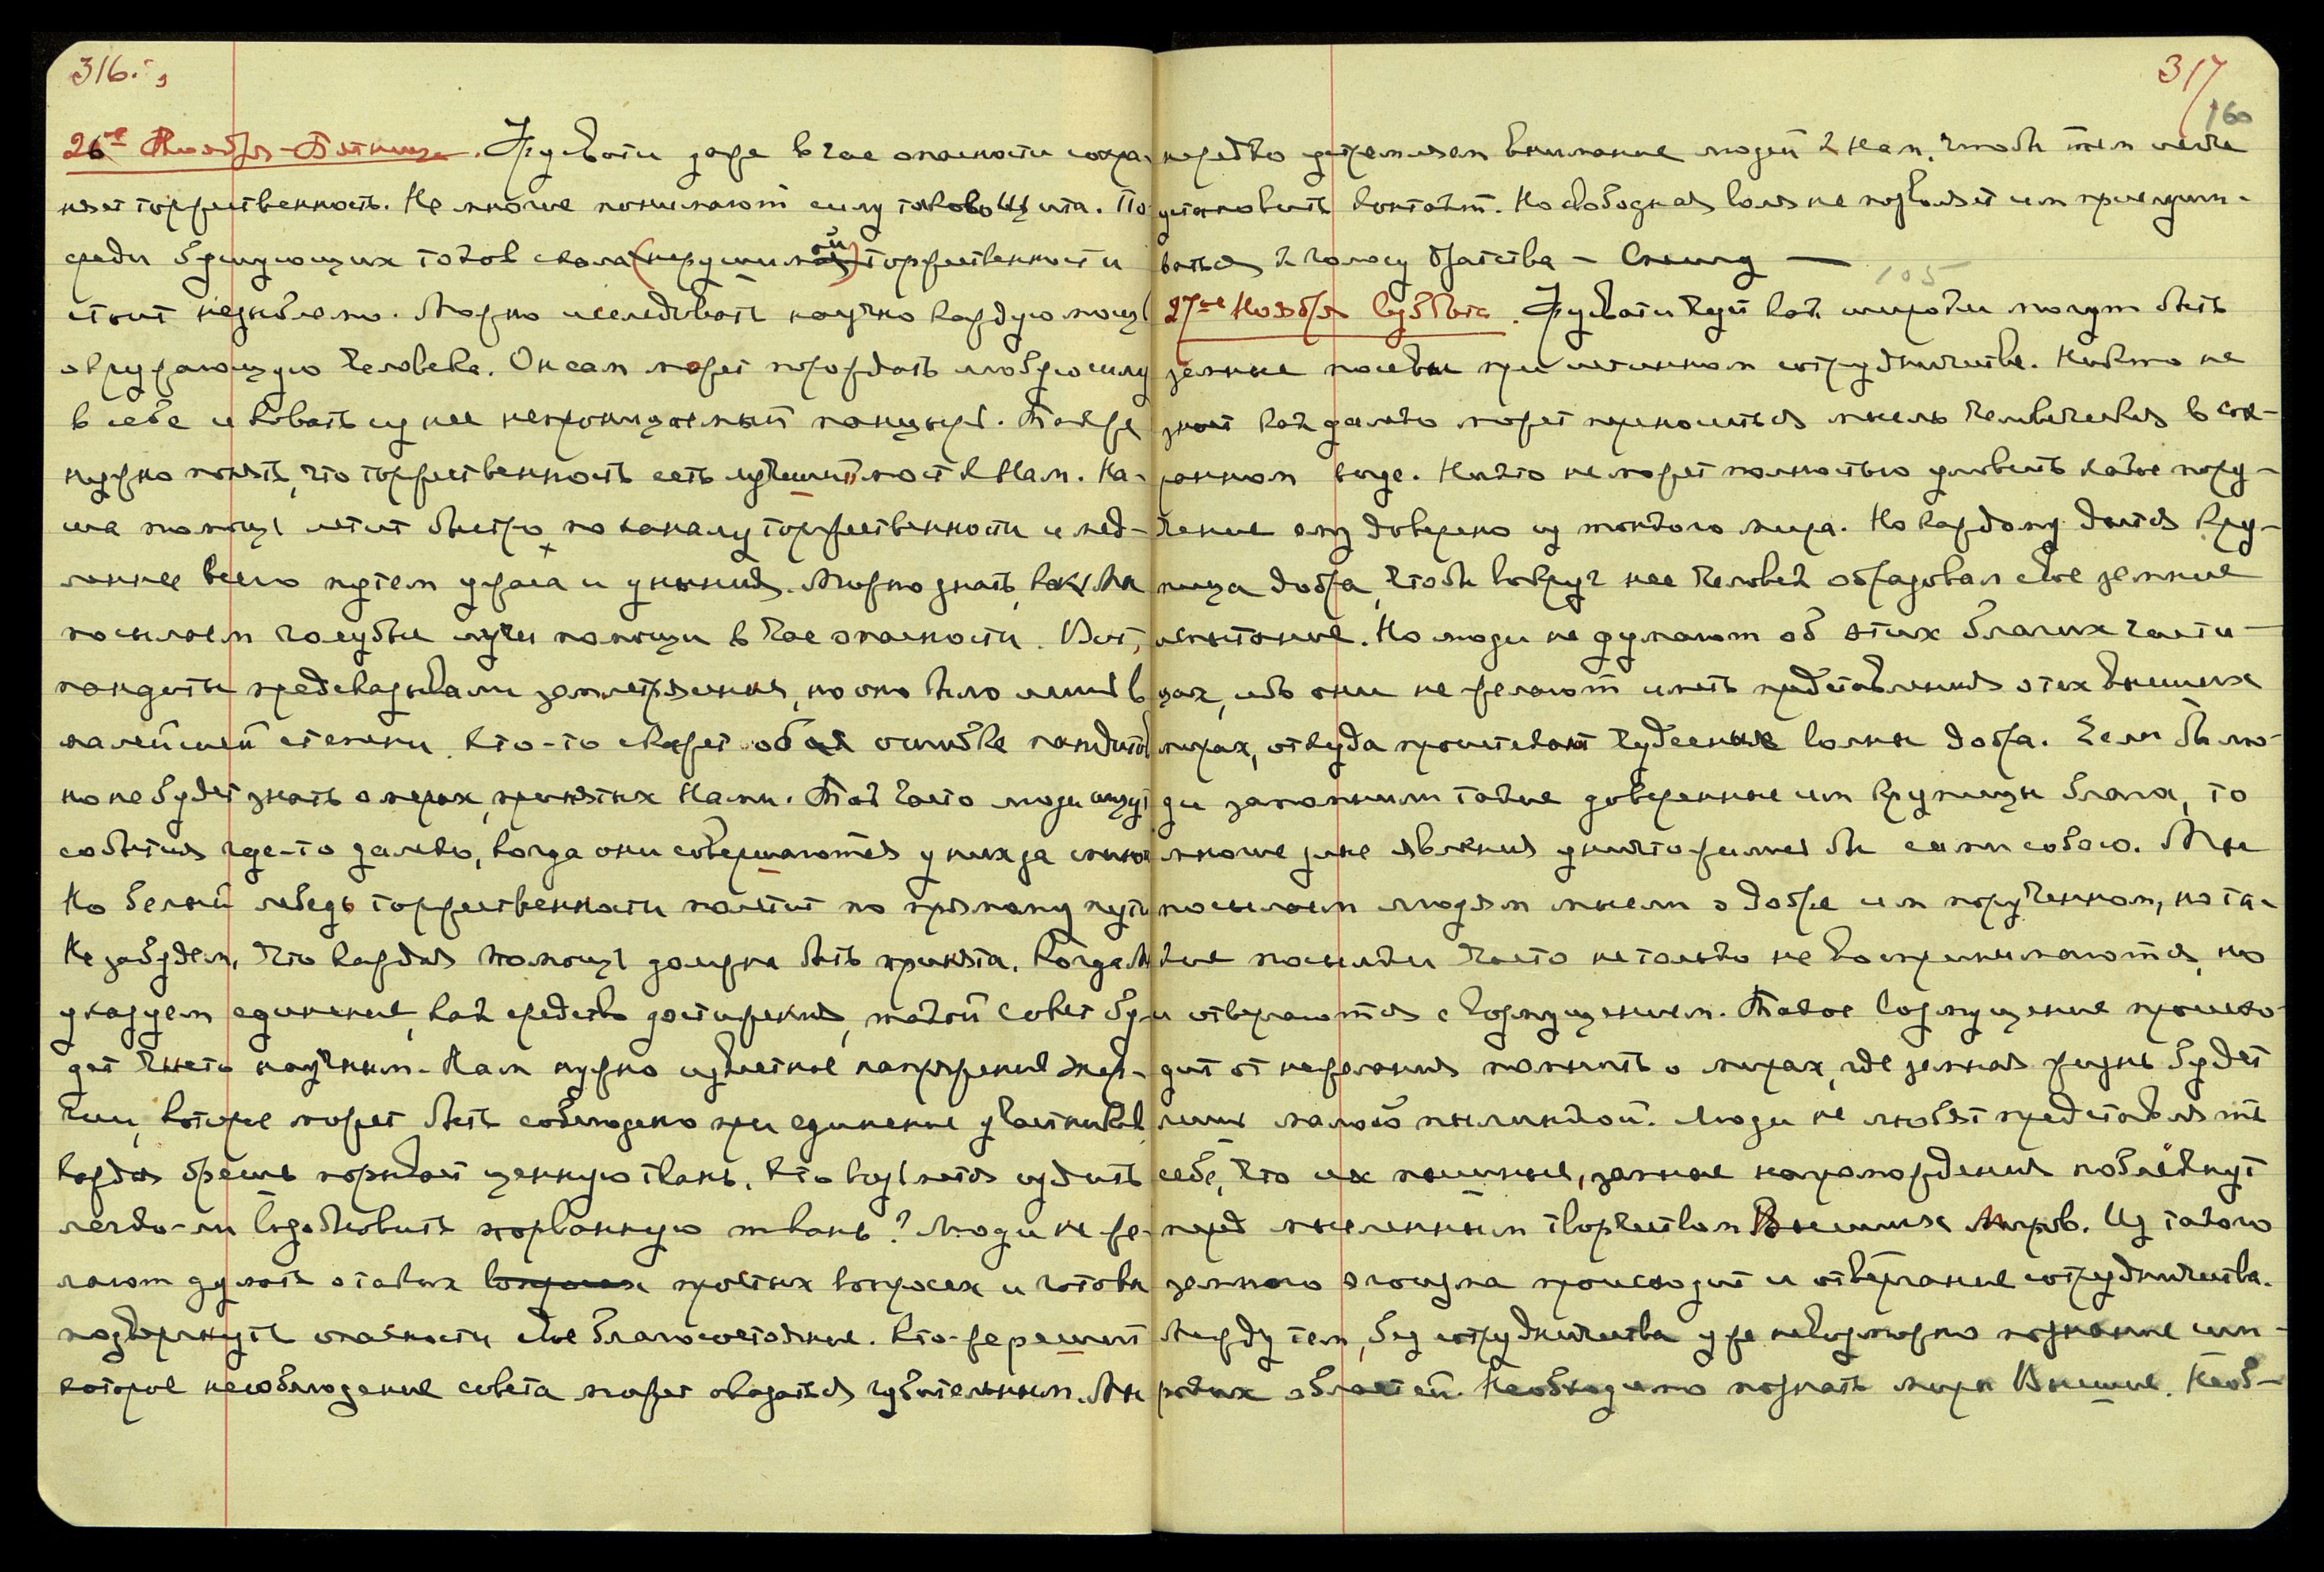 316.
26ое Ноября - Пятница. Урувати даже в час опасности сохра-
няет торжественность. Не многие понимают силу такого Щита. По-
среди бушующих токов скала (нерушимой) торжественности
стоит незыблемо. Можно исследовать научно каждую мощь
окружающую человека. Он сам может порождать любую силу
в себе и ковать из нее непроницаемый панцырь. Также
нужно понять, что торжественность есть лучший мост к Нам. На-
ша помощь летит быстро по каналу торжественности и мед-
леннее всего путем ужаса и уныния. Можно знать, как Мы
посылаем голубые лучи помощи в час опасности. Вот,
пандиты предсказывали землетрясения, но оно было лишь в
малейшей степени. Кто-то скажет об ошибке пандитов
но не будет знать о мерах, принятых Нами. Так часто люди ищут
события где-то далеко, когда они совершаются у них за спиною
Но белый лебедь торжественности полетит по прямому пути
Не забудем, что каждая помощь должна быть принята. Когда Мы
указуем единение, как средство достижения, такой совет бу-
дет чисто научным. Нам нужно известное напряжение энер-
гии, которое может быть соблюдено при единение участников.
каждая брешь порывает ценную ткань. Кто возьмется судить
легко-ли восстановить порванную ткань? Люди не же-
лают думать о таких вопросах простых вопросах и готовы
подвергнуть опасности свое благосостояние. Кто-же решит
которое несоблюдение совета может оказаться губительным. Мы
317
160
нередко устремляем внимание людей к Нам, чтобы тем легче
установить контакт. Но свободная воля не позволяет им прислуши-
ваться к голосу Братства - Спешу —
105
27ое Ноября Суббота. Урувати чует как широки могут быть
земные посевы при истинном сотрудничестве. Никто не
знает как далеко может переноситься мысль человеческая в сок-
ранном виде. Никто не может полностью уловить какое пору-
чение ему доверено из тонкого мира. Но каждому дается кру-
пица добра, чтобы вокруг нее человек образовал свое земные
испытание. Но люди не думают об этих благих части-
цах, ибо они не желают иметь представления о тех Высших
мирах, откуда проистекают чудесные волны добра. Если бы лю-
ди запомнили такие доверенные им крупицы блага, то
многие злые явления уничтожились бы сами собою. Мы
посылаем людям мысли о добре им порученном, но та-
кие посылки часто не только не воспринимаются, но
и отвергаются с возмущением. Такое возмущение происхо-
дит от нежелания помыслить о мирах, где земная жизнь будет
лишь малой пылинкой. Люди не любят представлять
себе, что их пышные, земные нагромождения поблёкнут
перед мысленным творчеством Высших Миров. Из такого
земного эгоизма происходит и отвергание сотрудничества.
Между тем, без сотрудничества уже невозможно познание ши-
роких областей. Необходимо познать миры Высшие. Необ-